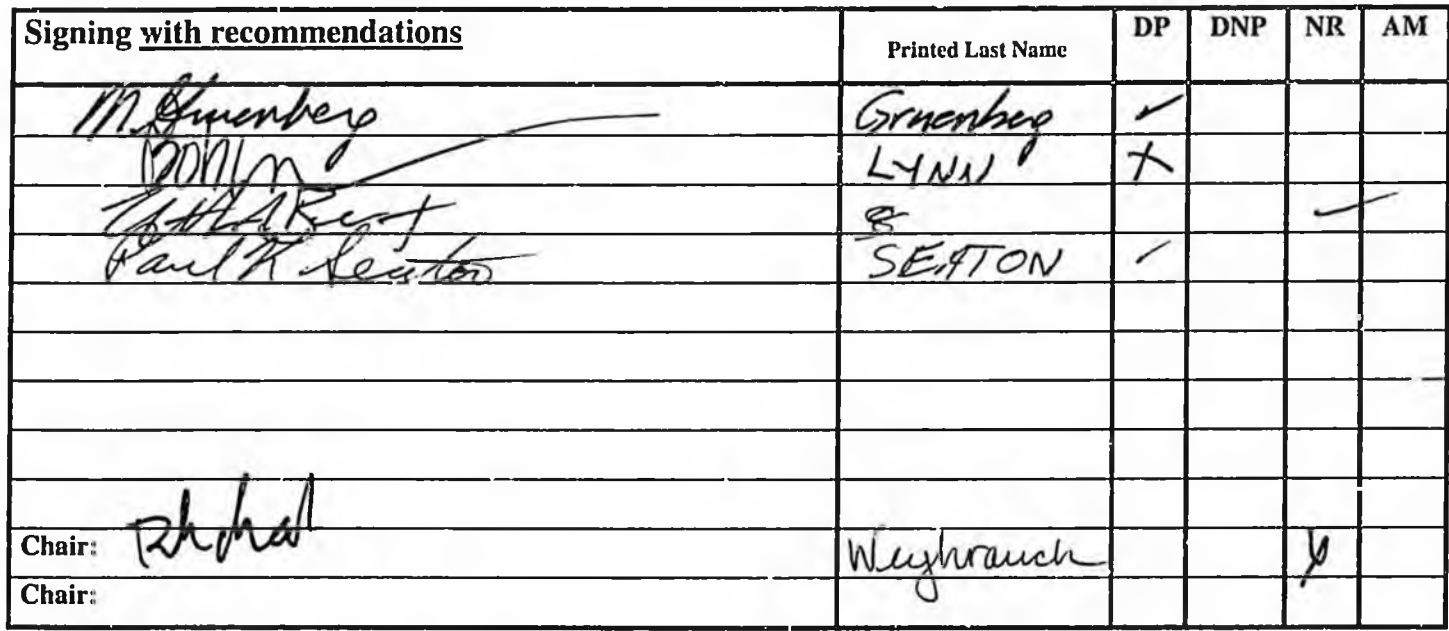 Signing with recommendations Printed Last Name DP DNP NR AM
M. Gruenberg Gruenberg ✓
LYNN X
✓
Paul K Seaton SEATON ✓
Chair: Weyhrauch X
Chair: